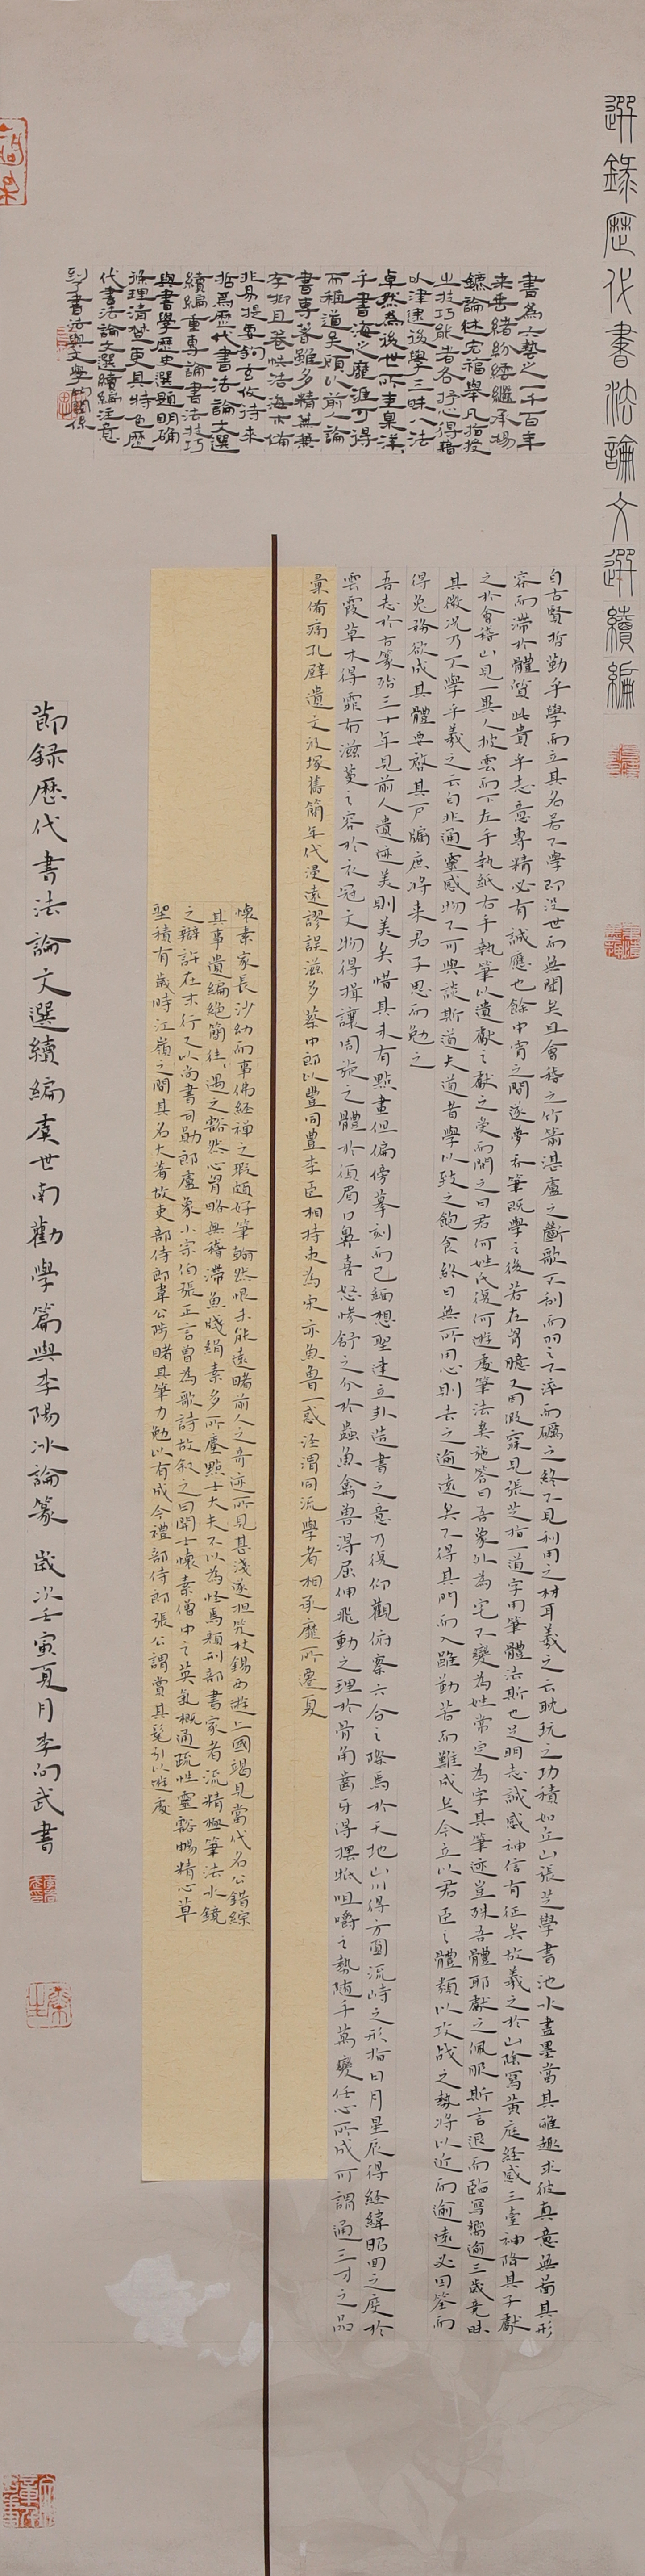 選錄歷代書法論文選續編
書為六藝之一千百年
來垂緒紛繼承揚
鑣論述宏福舉凡指授
之技巧能者各抒心得藉
以津逮後學三昧八法
卓然為後世所圭臬洋
乎書海之靡涯可得
而稱道矣顧以前之論
書專著雖多精蕪兼
存抑且卷帙浩海求備
非易提要鉤玄攸待來
哲為歷代書法論文選
續編重專論書法技巧
與書學歷史選題明確
條理清楚更具特色歷
代書法論文選續編注意
到了書法與文學的關係
自古賢哲勤乎學而立其名若不學即沒世而無聞矣且會稽之竹箭湛盧之斷歌不剖而羽之不淬而礪之終不見利用之材耳羲之云耽玩之功積如丘山張芝學書池水盡墨當其雅趣求彼真意無萌其形
容而滯於體質此貴乎志意專精必有誠應也餘中宵之間遂夢吞筆既學之後若在胸臆又因假寐見張芝指一道字用筆體法斯也足明志誠感神信有征矣故羲之於山陰寫黃庭經感三臺神降其子獻
之於會稽山見一異人披雲而下左手執紙右手執筆以遺獻之獻之受而問之曰君何姓氏復何遊處筆法奚施答曰吾象外為宅不變為姓常定為字其筆迹豈殊吾體耶獻之佩服斯言退而臨寫嚮逾三歲竟昧
其微況乃不學乎羲之云自非通靈感物不可與談斯道夫道者學以致之飽食終日無所用心則去之逾遠矣不得其門而入雖勤苦而難成矣今立以君臣之體類以攻戰之勢將以近而逾遠必因筌而
得兔務欲成其體要啓其戶牖庶將來君子思而勉之
吾志於古篆殆三十年見前人遺迹美則美矣惜其未有點畫但偏傍摹刻而已緬想聖達立卦造書之意乃復仰觀俯察六合之際焉於天地山川得方圓流峙之形指日月星辰得經緯昭回之度於
雲霞草木得霏布滋蔓之容於衣冠文物得揖讓周旋之體於須眉口鼻喜怒慘舒之分於蟲魚禽獸得屈伸飛動之理於骨角齒牙得擺抵咀嚼之勢隨手萬變任心所成可謂通三才之品
彙備痛孔壁遺文汲塚舊簡年代浸遠謬誤滋多蔡中郎以豐同豊李臣相持束為宋亦魚魯一惑涇渭同流學者相承靡所遷复
懷素家長沙幼而事佛經禪之暇頗好筆翰然恨未能遠睹前人之奇迹所見甚淺遂担笈杖錫西遊上國謁見當代名公錯綜
其事遺編絕簡往遇之豁然心胸略無稽滯魚牋絹素多所塵點士大夫不以為怪焉顏刑部書家者流精極筆法水鏡
之辯許在末行又以尚書司勛郎盧象小宗伯張正言曾為歌詩故叙之曰開士懷素僧中之英氣概通疏性靈豁暢精心草
聖積有歲時江嶺之間其名大著故吏部侍郎韋公陟睹其筆力勉以有成今禮部侍郎張公謂賞其髦引以遊處
節録歷代書法論文選續編虞世南勸學篇與李陽冰論篆 歲次壬寅夏月李向武書